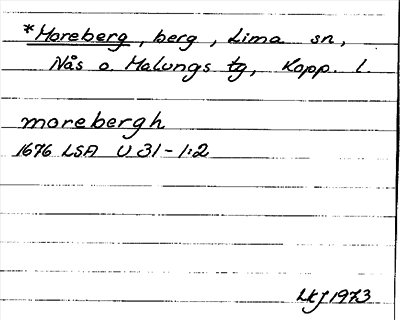 *Moreberg, berg, Lima sn,
Nås o. Malungs tg, Kopp. l.
morebergh
1676 LSA U 31-1:2
LKJ 1973